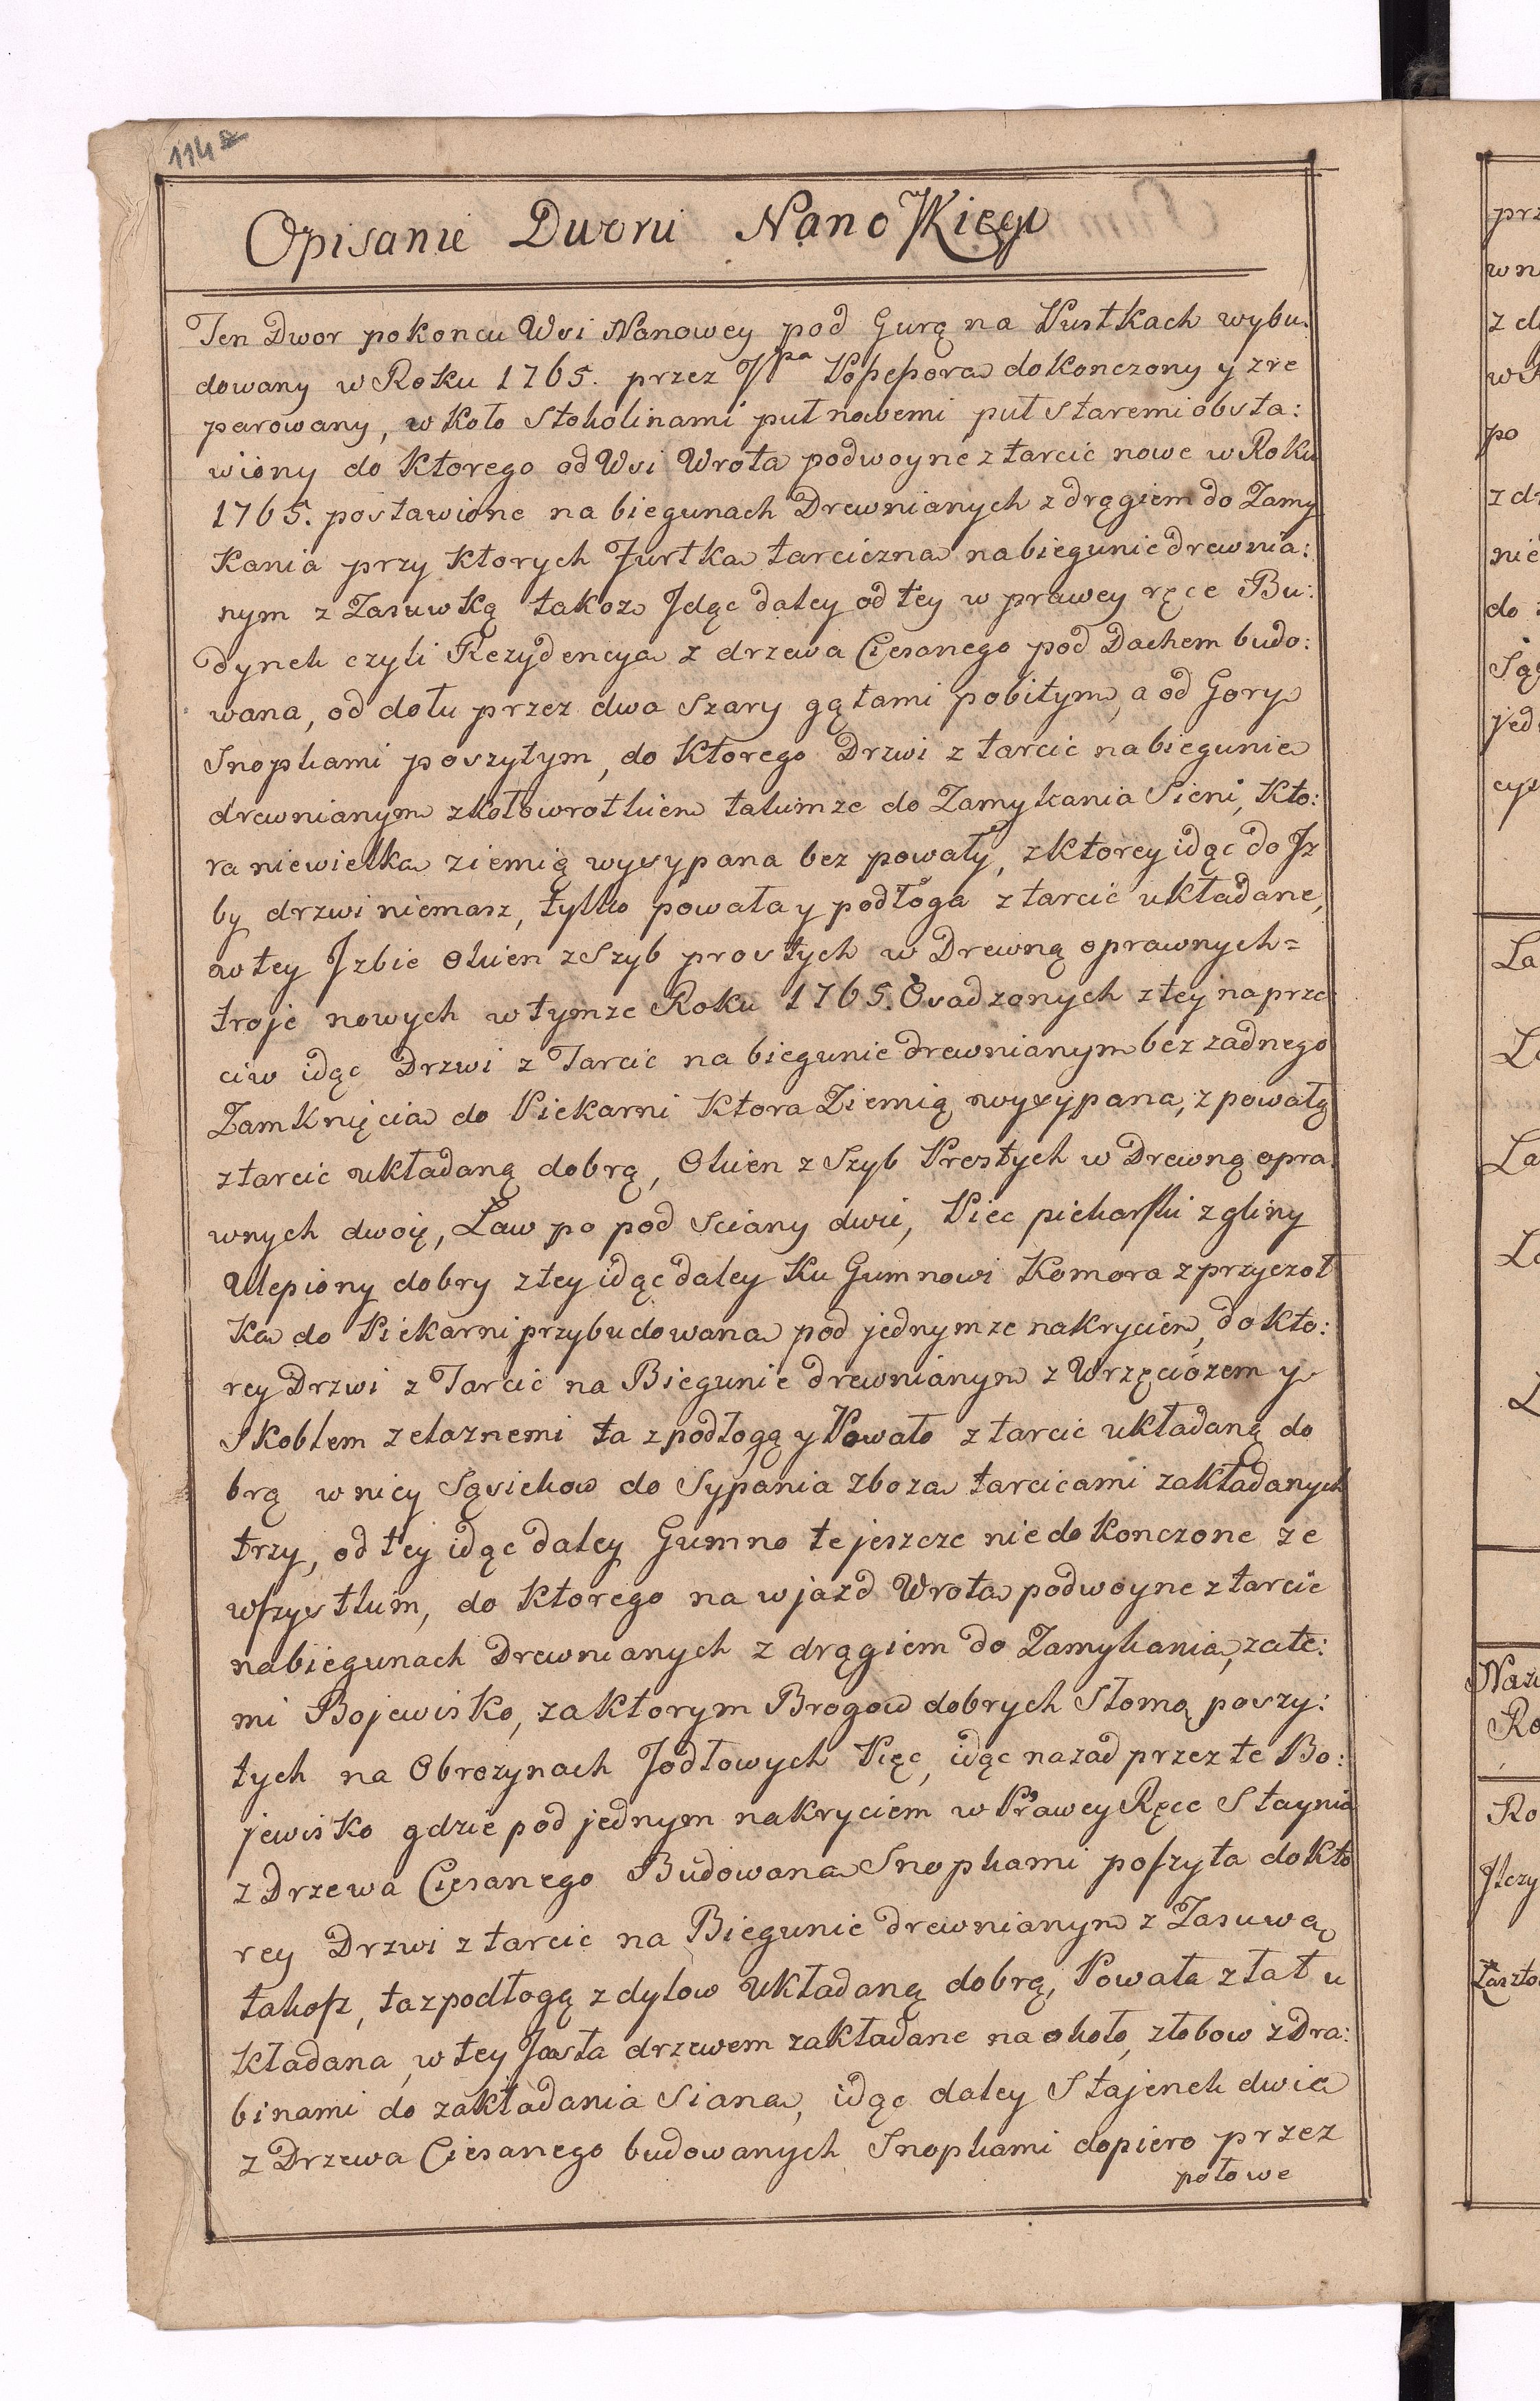 114
Opisanie Dworu Nanowskiego
Ten Dwor pokoncu Wsi Nanowey pod Gurą na Pustkach wybu:
dowany w Roku 1765. przez Jpa dokonczony y zre
parowany, w koło Stokolinami puł nowemi puł staremi obsta:
wiony do ktorego od Wsi Wrota podwoyne z tarcic nowe w Roku
1765. postawione na biegunach Drewnianych z drągiem do Zamy
kania przy ktorych Furtka tarciczna na biegunie drewnia:
nym z Zasuwką takoz Idąc daley od tey w prawey ręce Bu:
dynek czyli Rezydencya z drzewa Ciesanego pod Dachem budo:
wana, od dołu przez dwa Szary gątami pobitym, a od Gory
Snopkami poszytym, do ktorego Drzwi z tarcic na biegunie
drewnianym z kołowrotkiem takimze do Zamykania Sieni, kto:
ra niewielka ziemią wysypana bez powały, z ktorey idąc do Iz
by drzwi niemasz, tylko powała y podłoga z tarcic układane,
w tey Izbie Okien z Szyb prostych w Drewną oprawnych=
troje nowych w tymze Roku 1765. Osadzanych z tey naprze
ciw idąc Drzwi z Tarcic na biegunie drewnianym bez zadnego
Zamknięcia do Piekarni ktora Ziemią wysypana, z powałą
z tarcic układaną dobrą, Okien z Szyb Prostych w Drewną opra:
wnych dwoię, Ław po pod Sciany dwie, Piec piekarski z gliny
Ulepiony dobry z tey idąc daley ku Gumnowi Komora z przyczoł
ka do Piekarni przybudowana pod jednymze nakryciem, do kto:
rey Drzwi z Tarcic na Biegunie drewnianym z Wrzęciązem y
Skoblem zelaznemi ta z podłogą y Powało z tarcic układaną do
brą w nicy Sąsiekow do Sypania zboza tarcicami zakładanych
trzy, od tey idąc daley Gumno te jeszcze niedokonczone ze
wszystkim, do ktorego na wjazd Wrota podwoyne z tarcic
na biegunach Drewnianych z drągiem do Zamykania, za te:
mi Bojewisko, za ktorym Brogow dobrych Słomą poszy:
tych na Obrozynach Jodłowych Pięc, idąc nazad przez te Bo:
jewisko gdzie pod jednym nakryciem w Prawey Ręce Staynia
z Drzewa Ciesanego Budowana Snopkami poszyta do kto
rey Drzwi z tarcic na Biegunie drewnianym z Zasuwą
takosz, ta z podłogą z dylow Układaną dobrą, Powała z łat u
kładana, w tey Jasła drzewem zakładane na około, złobow z Dra:
binami do zakładania Siana, idąc daley Stajenek dwie
z Drzewa Ciesanego budowanych Snopkami dopiero przez
połowe